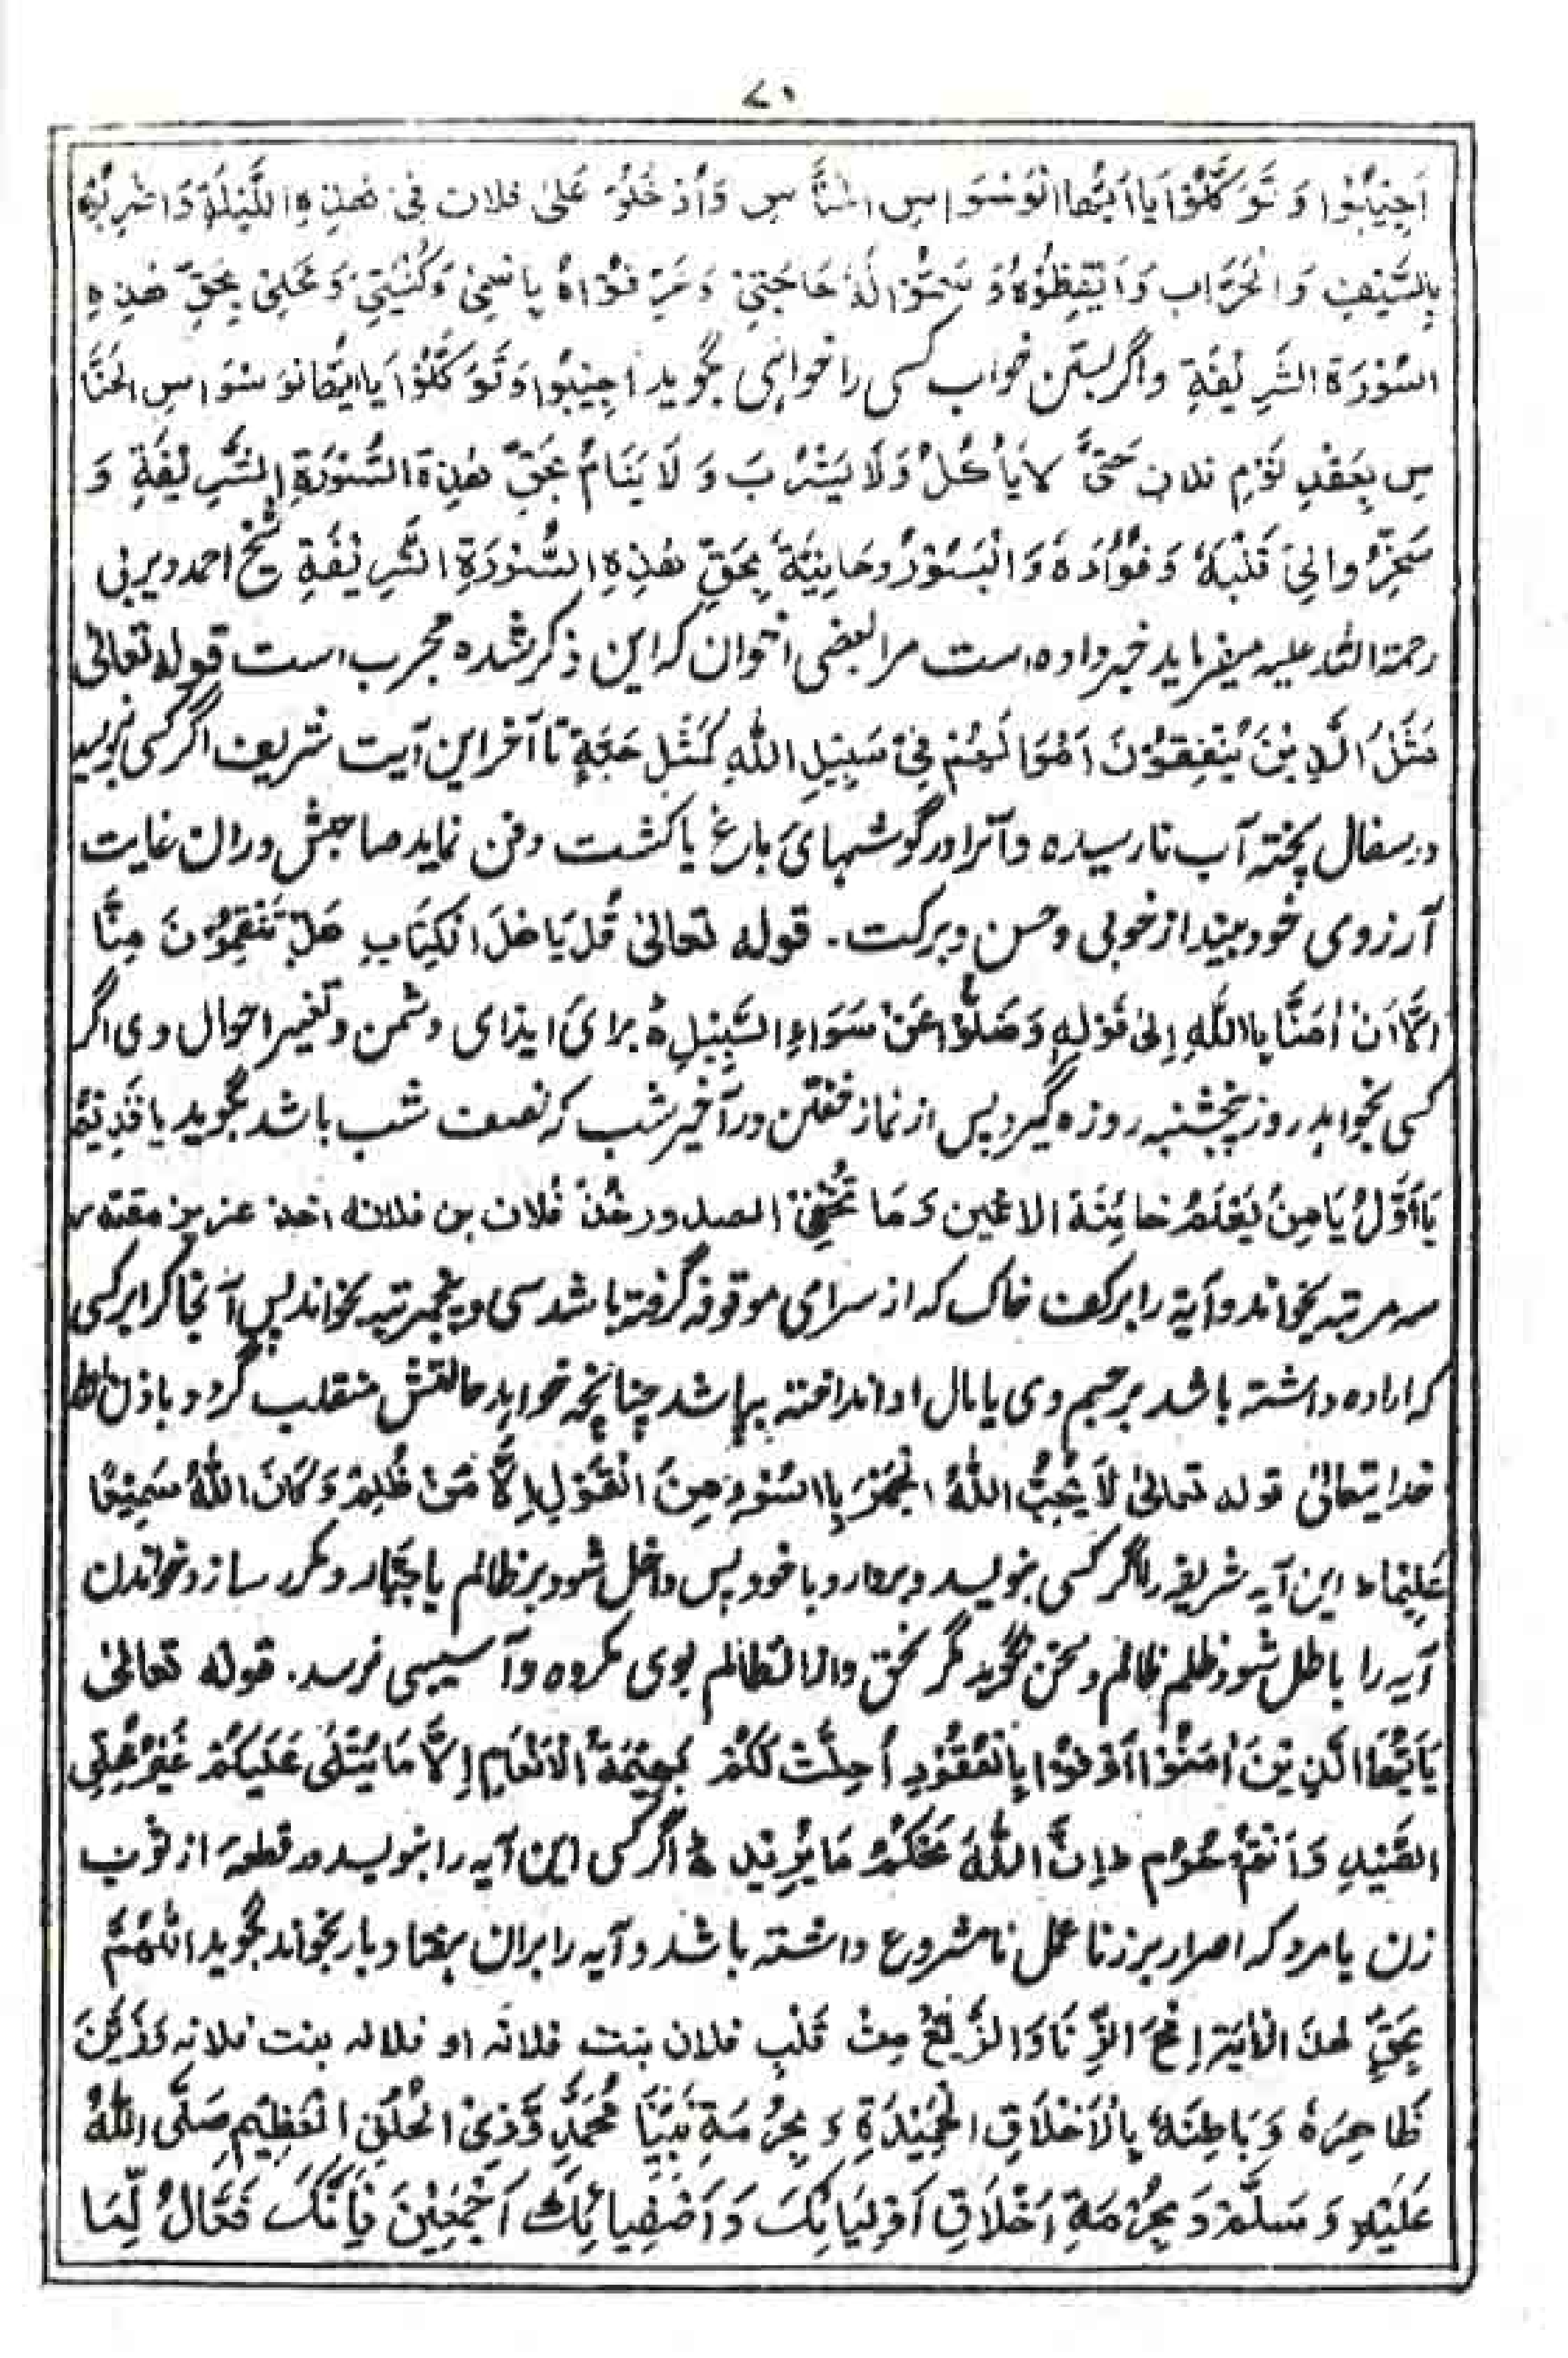 ۷۰
اَجِیْبُوْا وَ تَوَکَّلُوْا یَا اَیُّهَا الْوَسْوَاسِ الْخَنَّاسِ وَاُدْخُلُوْ عَلٰی فلان فِیْ هٰذِهِ اللَّیْلَةِ وَاضْرِبُوْهُ
بِالسَّیْفِ وَالْحَرَابِ وَاَیْقِظُوْهُ وَ سَمُّوْا لَهُ حَاجَتِیْ وَعَرِّفُوْاهُ بِاسْمِیْ وَکُنْیَتِیْ وَمَحَلِّیْ بِحَقِّ هٰذِهِ
السُّوْرَةِ الشَّرِیْفَةِ واگر بستن خواب کسی را خواہی بگوید اَجِیْبُوا وَتَوَکَّلُوْا یَا اَیُّهَا لوَسْوَاسِ الْخَنَّا
سِ بِعَقْدِ نَوْمِ فلان حَتّٰی لَا یَأْکُلُ وَلَا یَشْرَبَ وَ لَا یَنَامُ بِحَقِّ هٰذِهِ السُّوْرَةِ الشَّرِیْفَةِ وَ
سَخِّرُوا لِیْ قَلْبَهُ وَفُؤَادَهُ وَ رُوحَانِیَّةَ بِحَقِّ هٰذِهِ السُّوْرَةِ الشَّرِیْفَةِ شیخ احمد دیربی
رحمة اللہ علیہ میفرماید خبر داده است مرا بعضی اخوان که این ذکر شده مجرب است قوله تعالی
مَثَلُ الَّذِیْنَ یُنْفِقُوْنَ اَمْوَالَهُمْ فِیْ سَبِیْلِ اللّٰهِ کَمَثَلِ حَبَّةٍ تا آخر این آیت شریف اگر کسی بنویسد
در سفال پخته آب نارسیده و آنرا در گوشهای باغ یا کشت دفن نماید صاحبش دران غایت
آرزوی خود بیند از خوبی و حسن و برکت۔ قوله تعالیٰ قُلْ یَا اَهْلَ الْکِتَابِ هَلْ تَنْقِمُوْنَ مِنَّا
اِلَّا اَنْ اٰمَنَّا بِاللّٰهِ اِلٰی قَوْلِهِ وَضَلُّوْا عَنْ سَوَاءِ السَّبِیْلِ ه برای ایذای دشمن و تغییر احوال وی اگر
کسی بخواہد روز پنجشنبه روزه گیرد پس از نماز خفتن در آخر شب که نصف شب باشد بگوید یا قَدِیْمُ
یَا اَوَّلُ یَا مِنْ یَعْلَمُ خَائِنَةَ الاعین وَمَا تُخْفِیْ الصدور خُذْ فُلان بن فلانه اخذ عزیز مقتدر
سه مرتبه بخواند و آیة را بر کف خاک که از سرای موقوفه گرفته باشد سی و پنجمرتبه بخواند پس آنخاک را بر کسی
که اراده داشته باشد بر جسم وی یا بال او انداخته بپاشد چنانچه خواہد حالتش منقلب گردد باذن الله
خدایتعالیٰ قوله تعالیٰ لَا یُحِبُّ اللّٰهُ الْجَهْرَ بِالسُّوْءِ مِنَ الْقَوْلِ اِلَّا مَنْ ظُلِمَ وَکَانَ اللّٰهُ سَمِیْعًا
عَلِیْمًا ه این آیه شریفه را اگر کسی بنویسد و بردارد با خود پس داخل شود بر ظالم یا جبار و مکرر سازد خواندن
آیه را باطل شود ظلم ظالم و سخن نگوید مگر بحق و از الظالم بوی مکروه و آسیبی نرسد۔ قوله تعالیٰ
یَا اَیُّهَا الَّذِیْنَ اٰمَنُوْا اَوْفُوْا بِالْعُقُوْدِ اُحِلَّتْ لَکُمْ بَهِیْمَةُ الْاَنْعَامِ اِلَّا مَا یُتْلٰی عَلَیْکُمْ غَیْرَ مُحِلِّی
الصَّیْدِ وَاَنْتُمْ حُرُم ط اِنَّ اللّٰهَ یَحْکُمُ مَا یُرِیْدُ ه اگر کسی این آیه را بنویسد در قطعه از ثوب
زن یا مرد که اصرار بر زنا عمل نامشروع داشته باشد و آیه را بران هفتاد بار بخواند بگوید اَللّٰهُمَّ
بِحَقِّ هٰذَا الْاٰیَةِ اِمْحِ الزِّنَا وَالزَّیْغَ مِنْ قَلْبِ فلان بنت فلانه او فلانه بنت فلانه وَزَیِّنْ
ظَاهِرَهُ وَبَاطِنَهُ بِالْاَخْلَاقِ الْحَمِیْدَةِ وَ بِحُرْمَةِ نَبِیِّنَا مُحَمَّدٍ وَّذِیْ الْخُلُقِ الْعَظِیْمِ صَلَّی اللّٰهُ
عَلَیْهِ وَ سَلَّمَ وَ بِحُرْمَةِ اَخْلَاقِ اَوْلِیَائِکَ وَ اَصْفِیَائِکَ اَجْمَعِیْنَ فَاِنَّکَ فَعَّالٌ لِّمَا